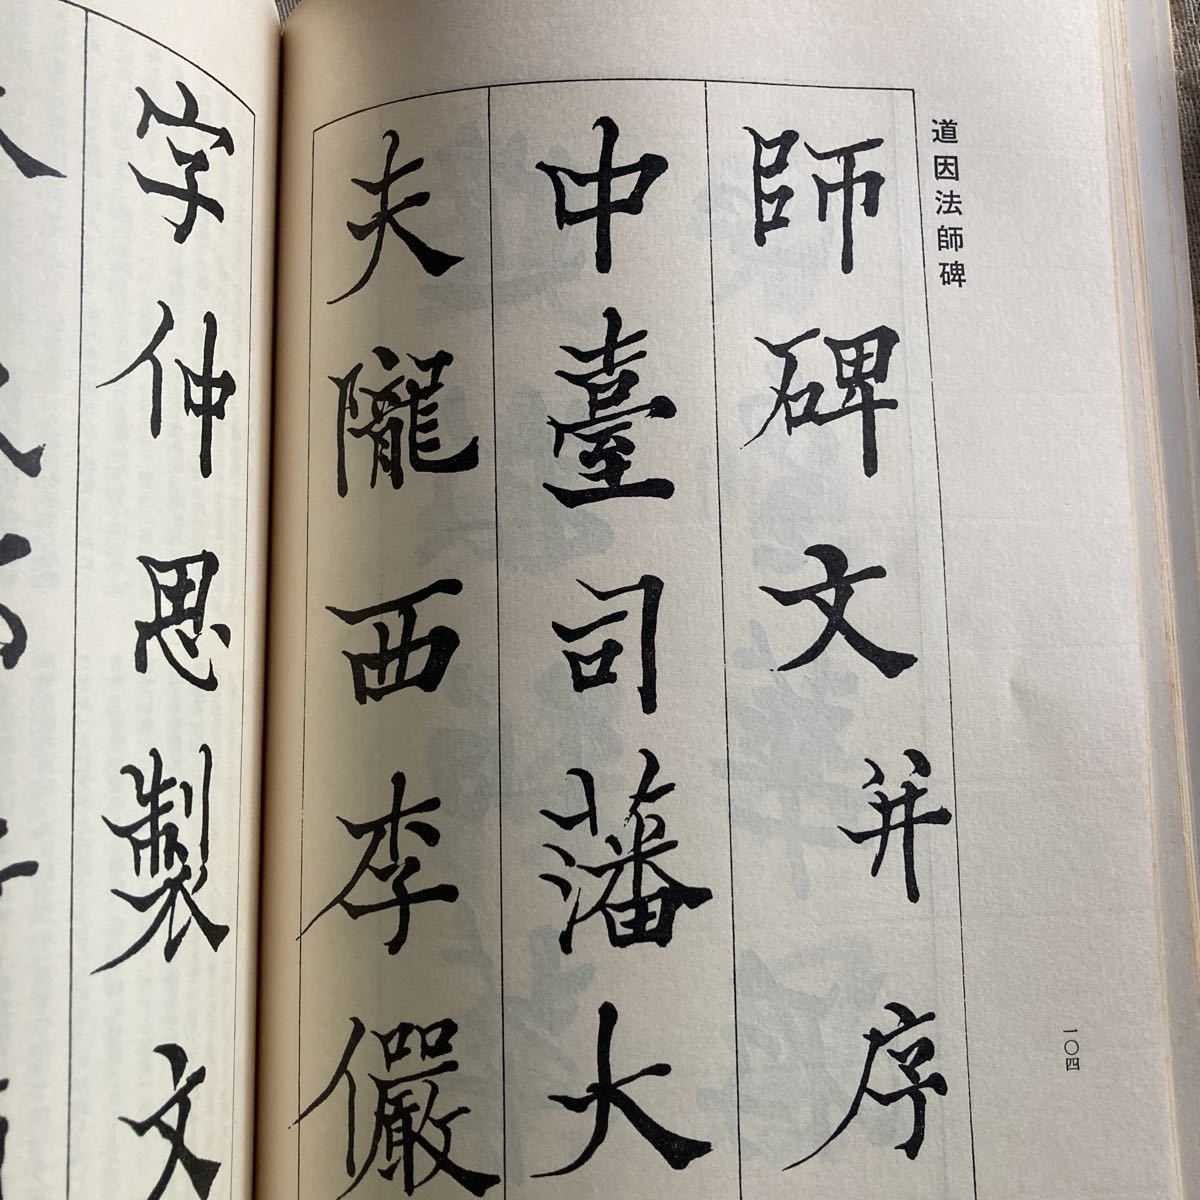 道因法師碑
師碑文并序
中臺司藩大
夫隴西李儼
字仲思製文
一〇四